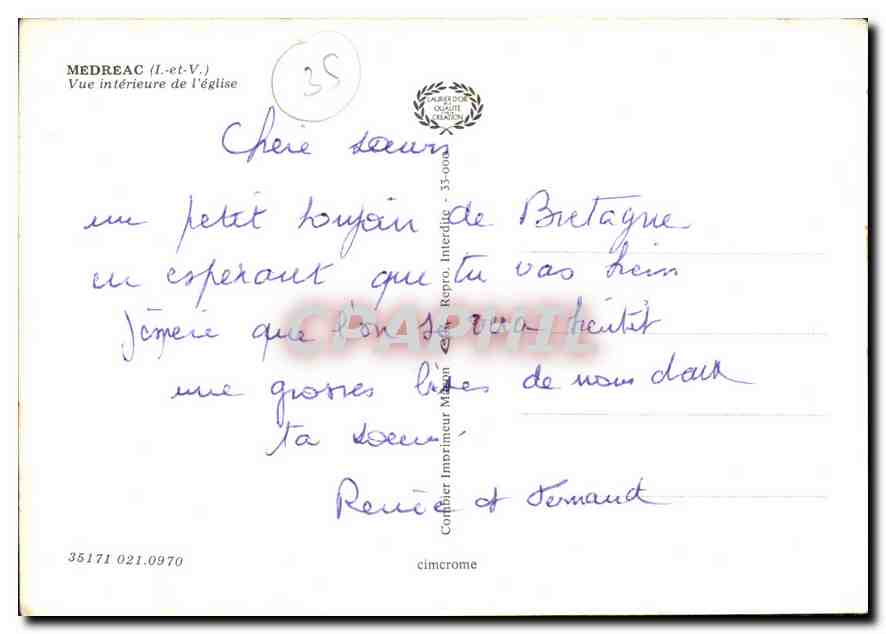 MEDREAC (I.-et-V.)
Vue intérieure de l'église
35
LAURIER D'OR
DE LA
QUALITÉ
CRÉATION
Chère sœurs
un petit bonjoir de Bretagne
en espérant que tu vas bien
J'espère que l'on se vera bientôt
une grosses bises de nous deux
ta soeur.
Renée et Fernand
Combier Imprimeur Macon - Repro. Interdite - 35-000
CPAPHIL
35171 021.0970
cimcrome